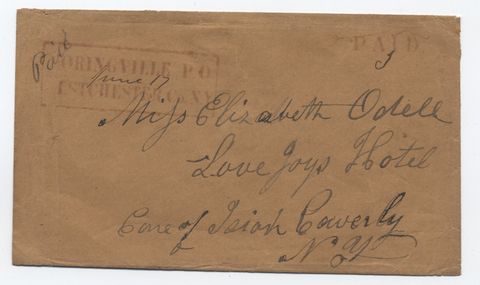 Paid
PAID
3
ORINGVILLE P.O
June 17
ESTCHESTER Co. N.Y.
Miss Elizabeth Odell
Love Joys Hotel
Care of Isiah Caverly
N. Y.